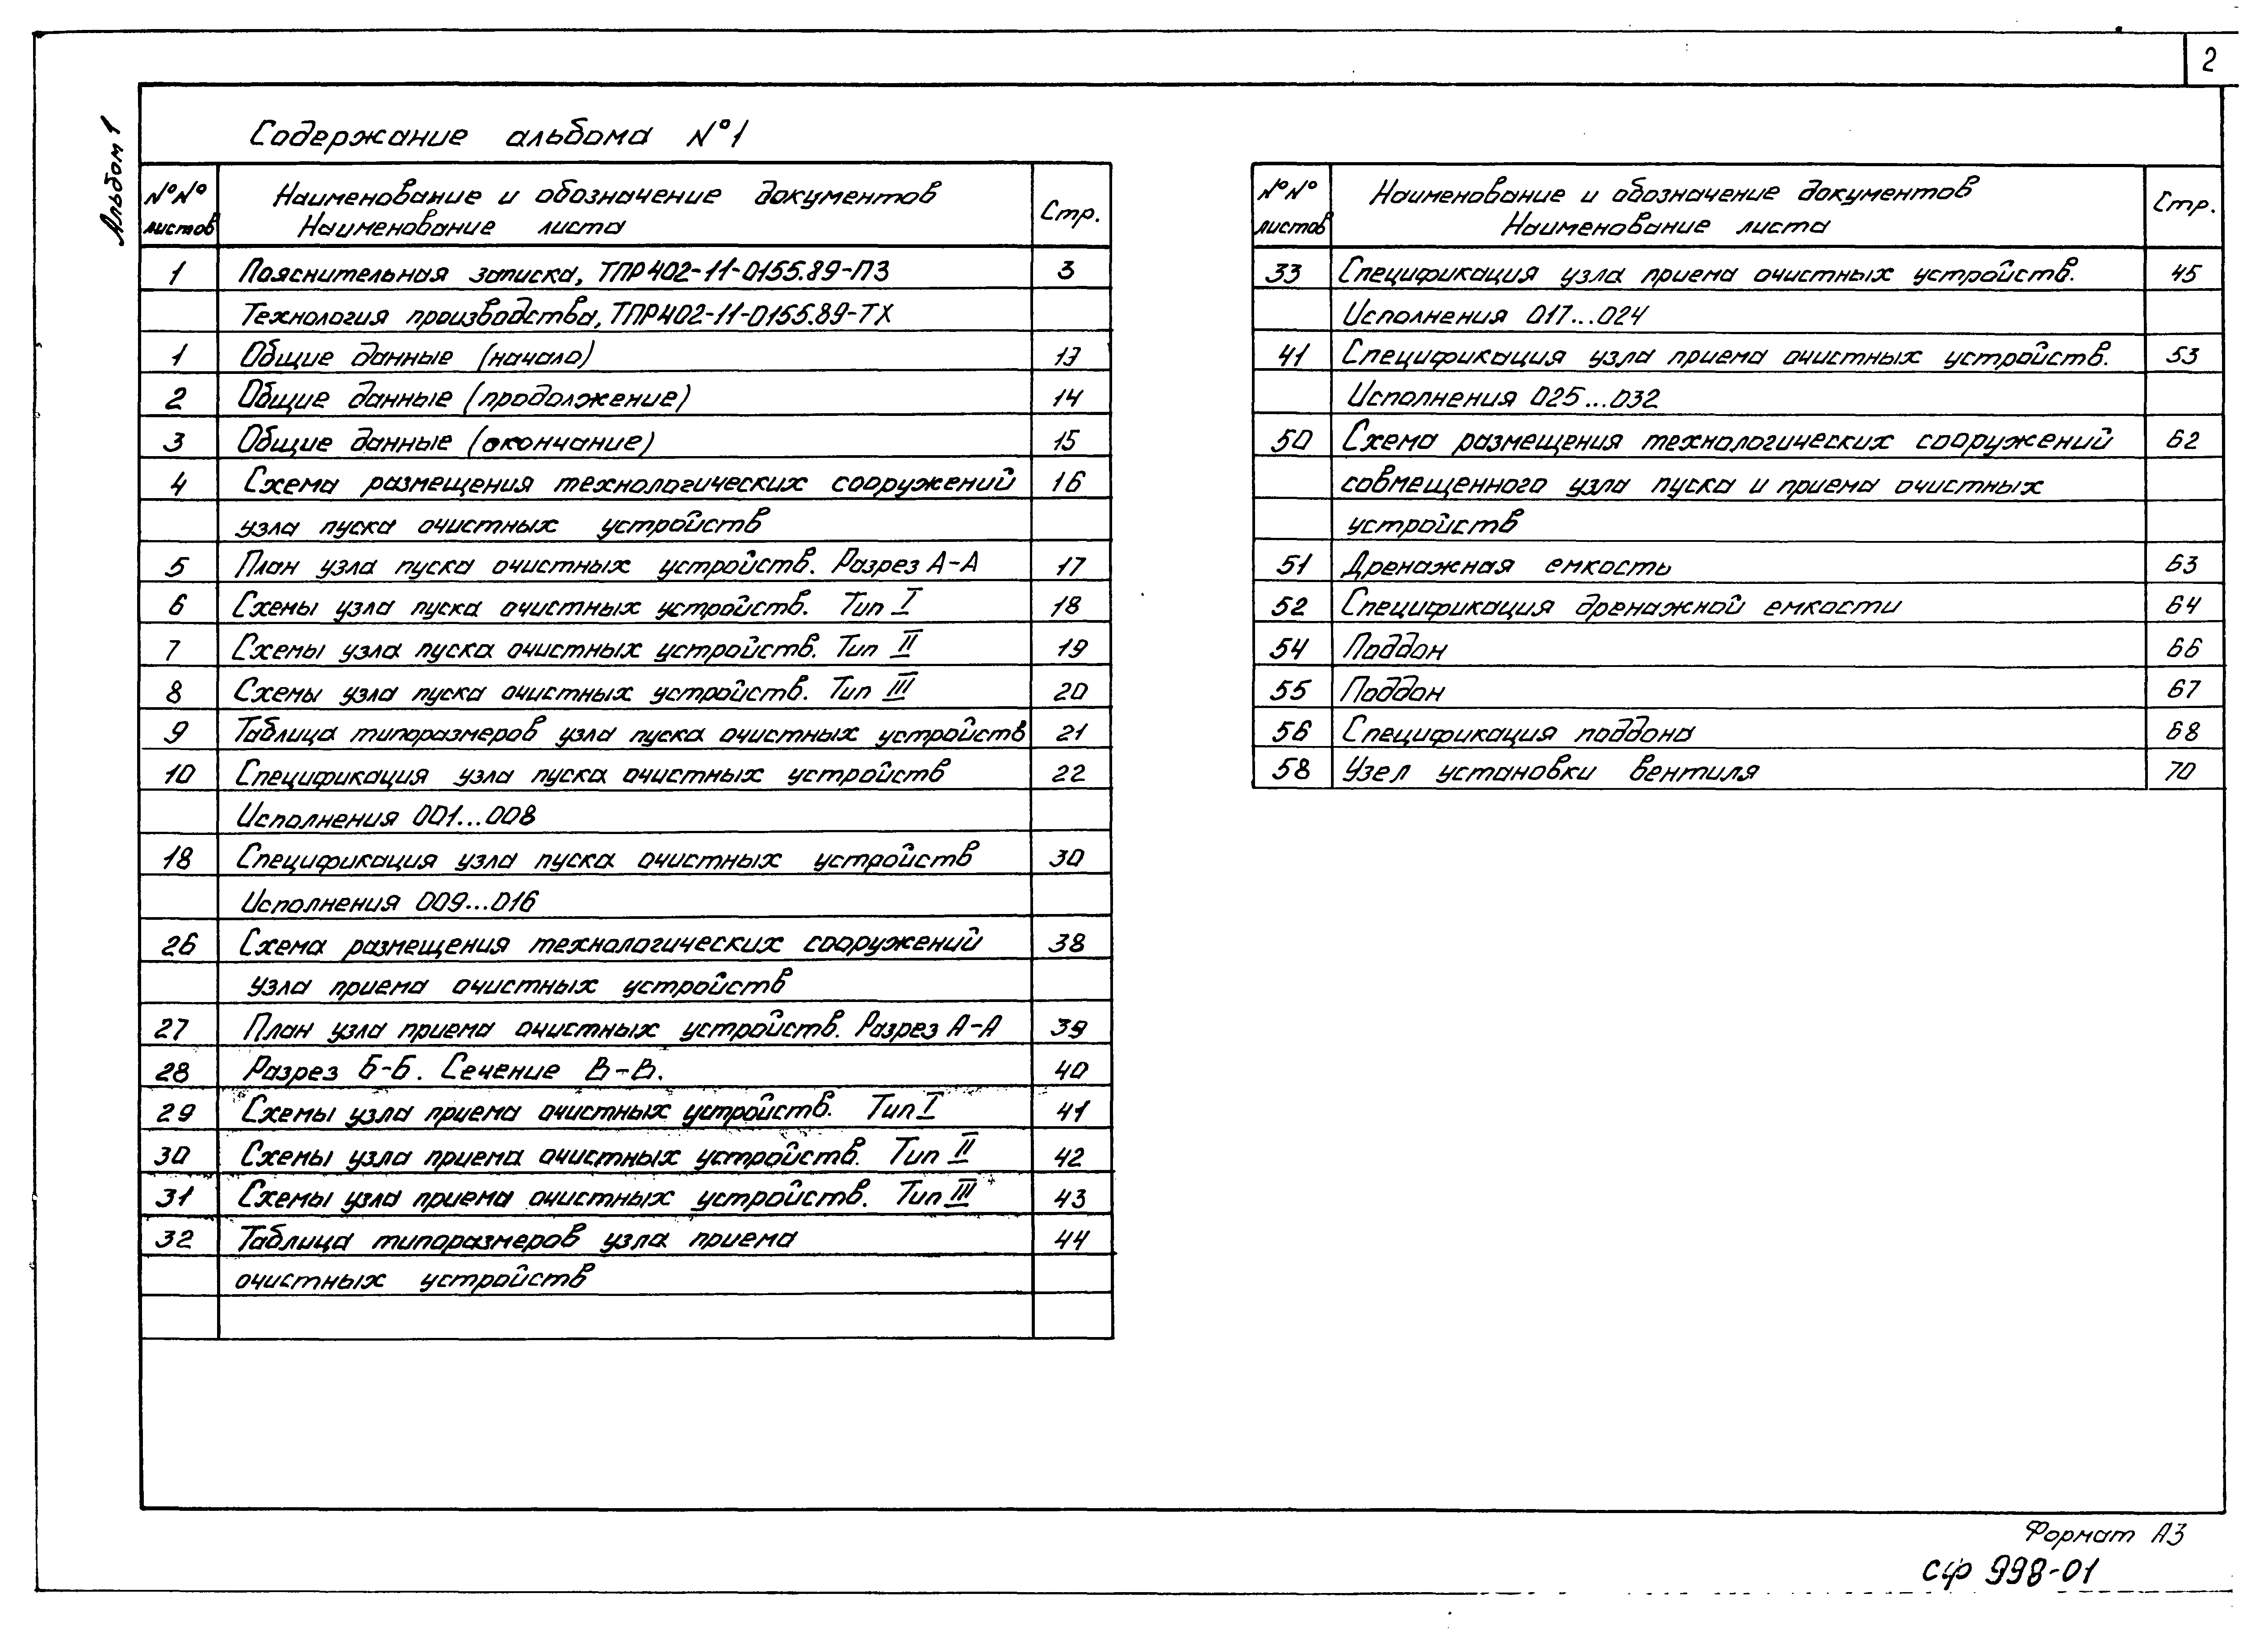 2
Альбом 1
Содержание альбома №1
№№ листов Наименование и обозначение документов Наименование листа Стр.
1 Пояснительная записка, ТПР402-11-0155.89-ПЗ 3
Технология производства, ТПР402-11-0155.89-ТХ
1 Общие данные (начало) 13
2 Общие данные (продолжение) 14
3 Общие данные (окончание) 15
4 Схема размещения технологических сооружений 16
узла пуска очистных устройств
5 План узла пуска очистных устройств. Разрез А-А 17
6 Схемы узла пуска очистных устройств. Тип I 18
7 Схемы узла пуска очистных устройств. Тип II 19
8 Схемы узла пуска очистных устройств. Тип III 20
9 Таблица типоразмеров узла пуска очистных устройств 21
10 Спецификация узла пуска очистных устройств 22
Исполнения 001...008
18 Спецификация узла пуска очистных устройств 30
Исполнения 009...016
26 Схема размещения технологических сооружений 38
узла приема очистных устройств
27 План узла приема очистных устройств. Разрез А-А 39
28 Разрез Б-Б. Сечение В-В. 40
29 Схемы узла приема очистных устройств. Тип I 41
30 Схемы узла приема очистных устройств. Тип II 42
31 Схемы узла приема очистных устройств. Тип III 43
32 Таблица типоразмеров узла приема 44
очистных устройств
№№ листов Наименование и обозначение документов Наименование листа Стр.
33 Спецификация узла приема очистных устройств. 45
Исполнения 017...024
41 Спецификация узла приема очистных устройств. 53
Исполнения 025...032
50 Схема размещения технологических сооружений 62
совмещенного узла пуска и приема очистных
устройств
51 Дренажная емкость 63
52 Спецификация дренажной емкости 64
54 Поддон 66
55 Поддон 67
56 Спецификация поддона 68
58 Узел установки вентиля 70
Формат А3
сф 998-01